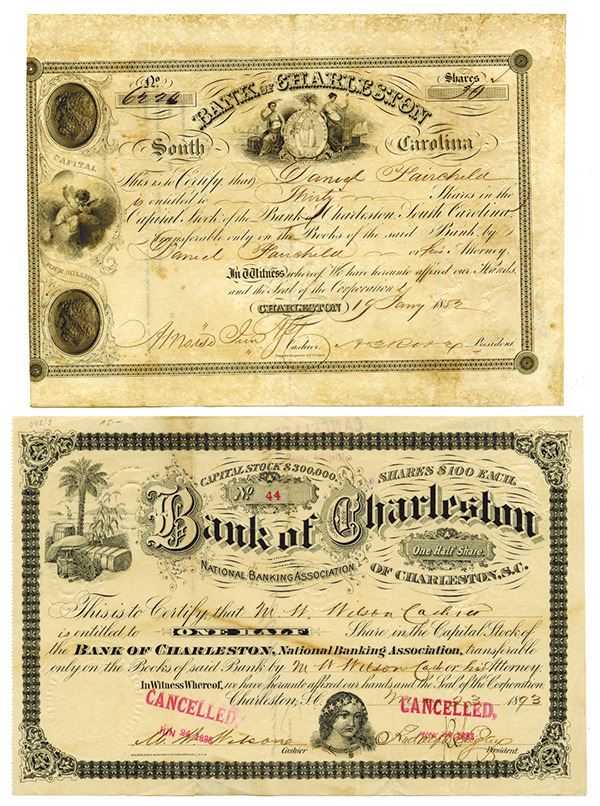 No
Shares
30
BANK OF CHARLESTON
South Carolina
CAPITAL
FOUR MILLIONS
This is to Certify, that Daniel Fairchild
is entitled to Thirty Shares in the
Capital Stock of the Bank of Charleston South Carolina
Transferable only on the Books of the said Bank, by
Daniel Fairchild or his Attorney.
In Witness whereof We have hereunto affixed our Hands,
and the Seal of the Corporation
CHARLESTON 19 Jany 1852
Cashier. President.
CANCELLED
CAPITAL STOCK $300,000. SHARES $100 EACH
No 44
Bank of Charleston
One Half Share.
NATIONAL BANKING ASSOCIATION
OF CHARLESTON, S.C.
This is to Certify that M. W. Wilson Cashier
is entitled to ONE HALF Share in the Capital Stock of
the BANK OF CHARLESTON, National Banking Association, transferable
only on the Books of said Bank by M W Wilson Cash or his Attorney.
In Witness Whereof, we have hereunto affixed our hands and the Seal of the Corporation
Charleston, S.C. 1893
CANCELLED, CANCELLED,
M. W. Wilson
Cashier President.